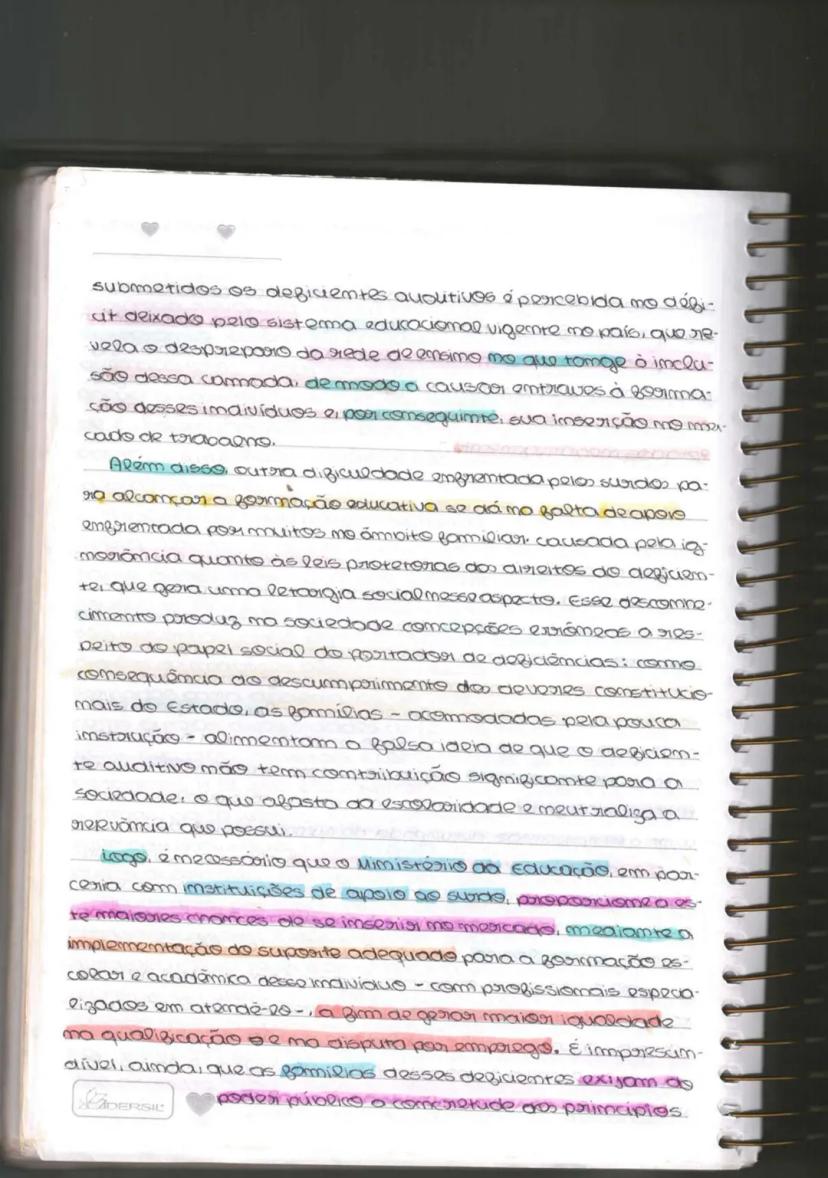 submetidos os deficientes auditivos é percebida no défi-
cit deixado pelo sistema educacional vigente no país, que re-
vela o despreparo da rede de ensino no que tange à inclu-
são dessa camada, de modo a causar entraves à forma-
ção desses indivíduos e, por conseguinte, sua inserção no mer-
cado de trabalho.
Além disso, outra dificuldade enfrentada pelos surdos pa-
ra alcançar a formação educativa se dá na falta de apoio
enfrentada por muitos no âmbito familiar, causada pela ig-
norância quanto às leis protetoras dos direitos do deficien-
te, que gera uma letargia social nesse aspecto. Esse desconhe-
cimento produz na sociedade concepções errôneas a res-
peito do papel social do portador de deficiências: como
consequência do descumprimento dos deveres constitucio-
nais do Estado, as famílias - acomodadas pela pouca
instrução - alimentam a falsa ideia de que o deficien-
te auditivo não tem contribuição significante para a
sociedade, o que afasta da escolaridade e neutraliza a
relevância que possui.
Logo, é necessário que o Ministério da Educação, em par-
ceria com instituições de apoio ao surdo, proporcione a es-
te maiores chances de se inserir no mercado, mediante a
implementação do suporte adequado para a formação es-
colar e acadêmica desse indivíduo - com profissionais especia-
lizados em atendê-lo -, a fim de gerar maior igualdade
na qualificação e na disputa por emprego. É imprescin-
dível, ainda, que as famílias desses deficientes exijam do
poder público a concretude dos princípios